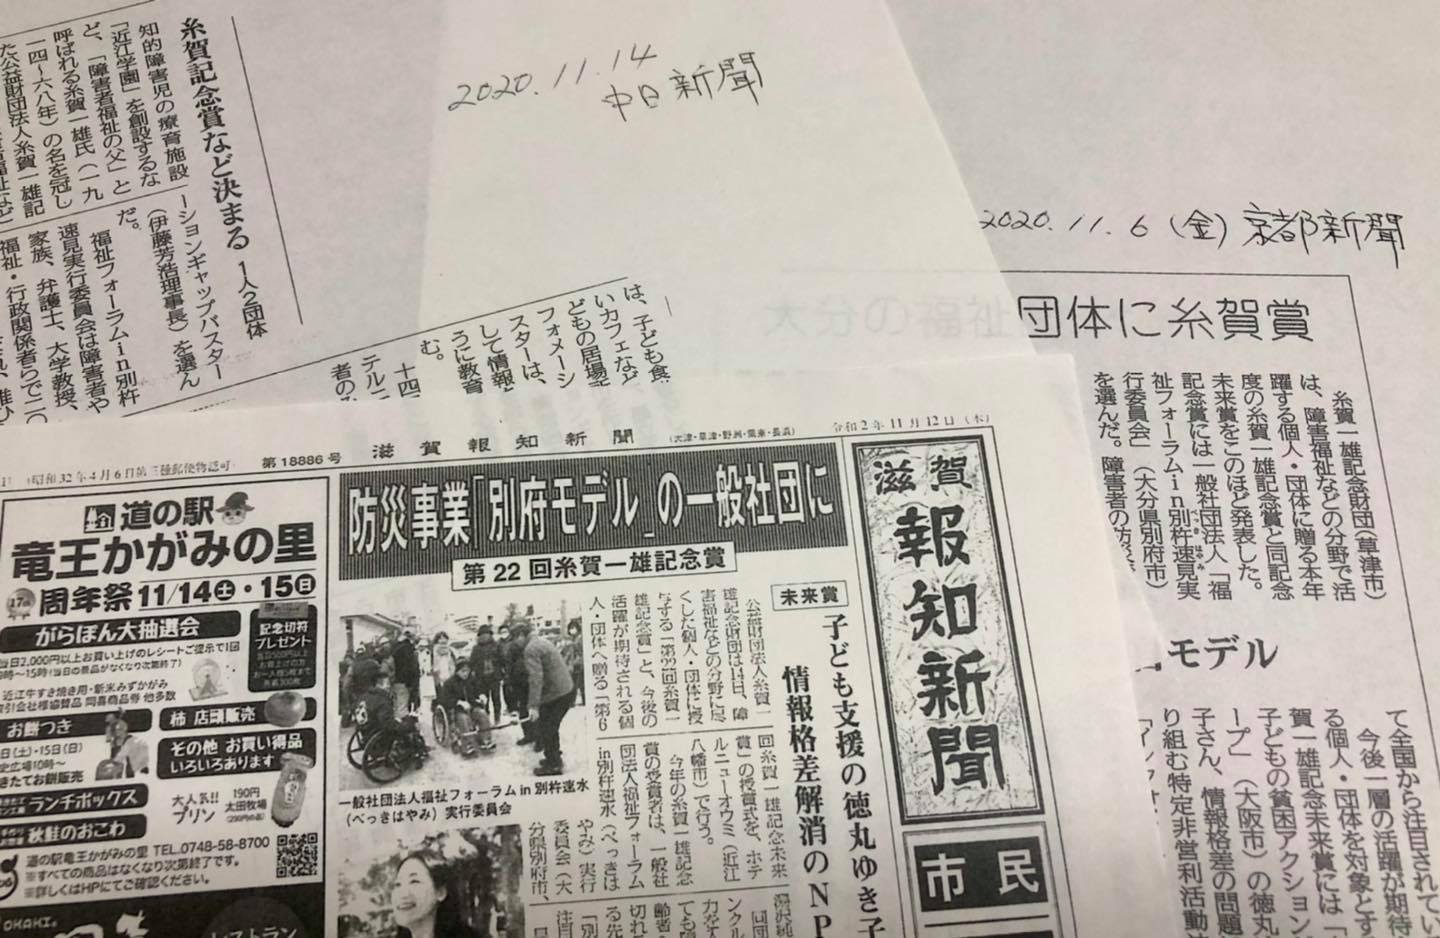 糸賀記念賞など決まる 1人2団体
知的障害児の療育施設
「近江学園」を創設するな
ど、「障害者福祉の父」と
呼ばれる糸賀一雄氏(一九
一四〜六八年)の名を冠し
た公益財団法人糸賀一雄記
ーションギャップバスター
(伊藤芳浩理事長)を選ん
だ。
福祉フォーラムin別杵
速見実行委員会は障害者や
家族、弁護士、大学教授、
福祉・行政関係者らで二〇
2020.11.14
中日新聞
は、子ども食
いカフェなど
どもの居場
フォメーシ
スターは、
して情報
うに教育
む。
十四
テル
者の
2020.11.6(金)京都新聞
大分の福祉団体に糸賀賞
糸賀一雄記念財団(草津市)
は、障害福祉などの分野で活
躍する個人・団体に贈る本年
度の糸賀一雄記念賞と同記念
未来賞をこのほど発表した。
記念賞には一般社団法人「福
祉フォーラムin別杵速見実
行委員会」(大分県別府市)
を選んだ。障害者の防災
モデル
て全国から注目されてい
今後一層の活躍が期待
る個人・団体を対象とす
賀一雄記念未来賞には「
子どもの貧困アクション
ープ」(大阪市)の徳丸
子さん、情報格差の問題
り組む特定非営利活動法
昭和32年4月6日第三種郵便物認可
第18886号
滋賀報知新聞
(大津・草津・野洲・栗東・長浜)
令和2年11月12日(木)
滋賀
報知新聞
市民
防災事業「別府モデル」の一般社団に
第22回糸賀一雄記念賞
未来賞
子ども支援の徳丸ゆき子
情報格差解消のNP
公益財団法人糸賀一
雄記念財団は14日、障
害福祉などの分野に尽
くした個人・団体に授
与する「第22回糸賀一
雄記念賞」と、今後の
活躍が期待される個
人・団体へ贈る「第6
回糸賀一雄記念未来
賞」の授賞式を、ホテ
ルニューオウミ(近江
八幡市)で行う。
今年の糸賀一雄記念
賞の受賞者は、一般社
団法人福祉フォーラム
in別杵速水(べっき
はやみ)実行
委員会(大
分県別府市、
一般社団法人福祉フォーラムin別杵速水
(べっきはやみ)実行委員会
道の駅
竜王かがみの里
17th
周年祭11/14土・15日
がらぽん大抽選会
当日2,000円以上お買い上げのレシートご提示で1回
9時〜15時(当日の景品がなくなり次第終了)
近江牛すき焼き用・新米みずかがみ
取引会社様協賛品 同喜商品券 他多数
記念切符
プレゼント
お餅つき
日(土)・15日(日)
広場10時〜
きたてお餅販売
柿 店頭販売
その他 お買い得品
いろいろあります
ランチボックス
秋鮭のおこわ
大人気!!
プリン
190円
太田牧場
道の駅竜王かがみの里 TEL.0748-58-8700
※すべての商品はなくなり次第終了です。
※詳しくはHPにてご確認ください。
OKAKI
レストラン